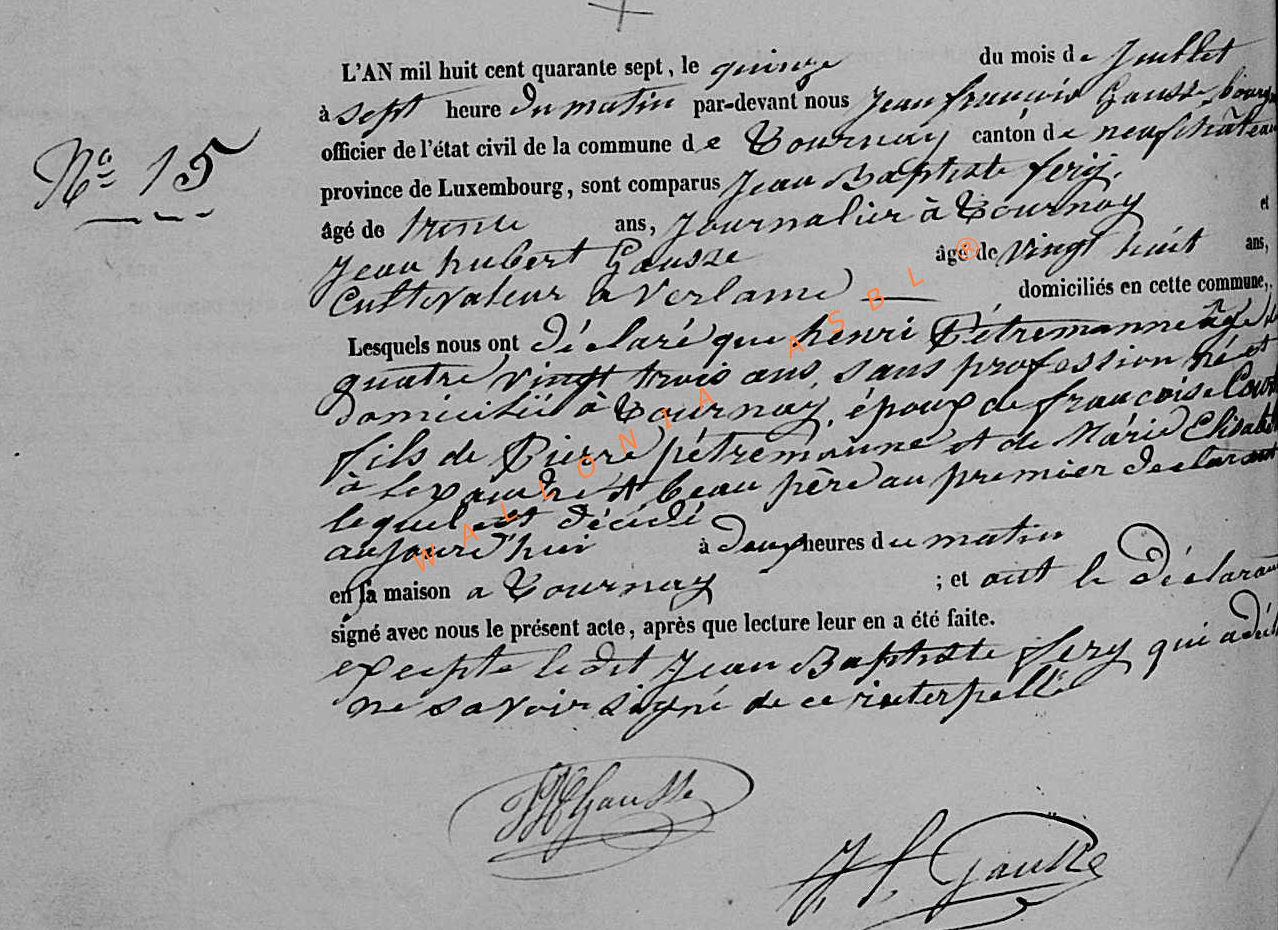 L'AN mil huit cent quarante sept, le quinze du mois de Juillet
à sept heure du matin par-devant nous Jean françois Gausse, bourg
officier de l'état civil de la commune de Tournay canton de neufchâteau
N° 15
province de Luxembourg, sont comparus Jean Baptiste fery.
âgé de trente ans, Journalier à Tournay et
Jean hubert Gausse âgé de vingt huit ans,
Cultivateur a Verlaine domiciliés en cette commune,
Lesquels nous ont déclaré que henri Pétremanne âgé de
quatre vingt trois ans, sans profession né et
domicilié à Tournay, époux de françoise
fils de Pierre pétremanne et de Marie Elisabeth
beau père au premier declarant
lequel est décédé
aujourd'hui à deux heures du matin
en sa maison a Tournay ; et ont le déclarant
signé avec nous le présent acte, après que lecture leur en a été faite.
excepte le dit Jean Baptiste fery qui a
ne savoir signé de ce interpellé
JH Gausse
J. f. Gausse
WALLONIA ASBL ®